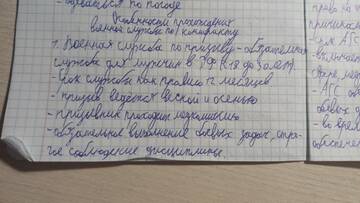 - одеваться по погоде
Особенности прохождения
военной службы по контракту
1. Военная служба по призыву - обязательная
служба для мужчин в РФ (с 18 до 30 лет).
- срок службы как правило 12 месяцев
- призыв ведётся весной и осенью
- призывник проходит медкомиссию
- обязательное выполнение боевых задач, стро-
гое соблюдение дисциплины.
права на
причина
для АГС
- включает
сфере
- АГС
боевых
- во время
обеспечен